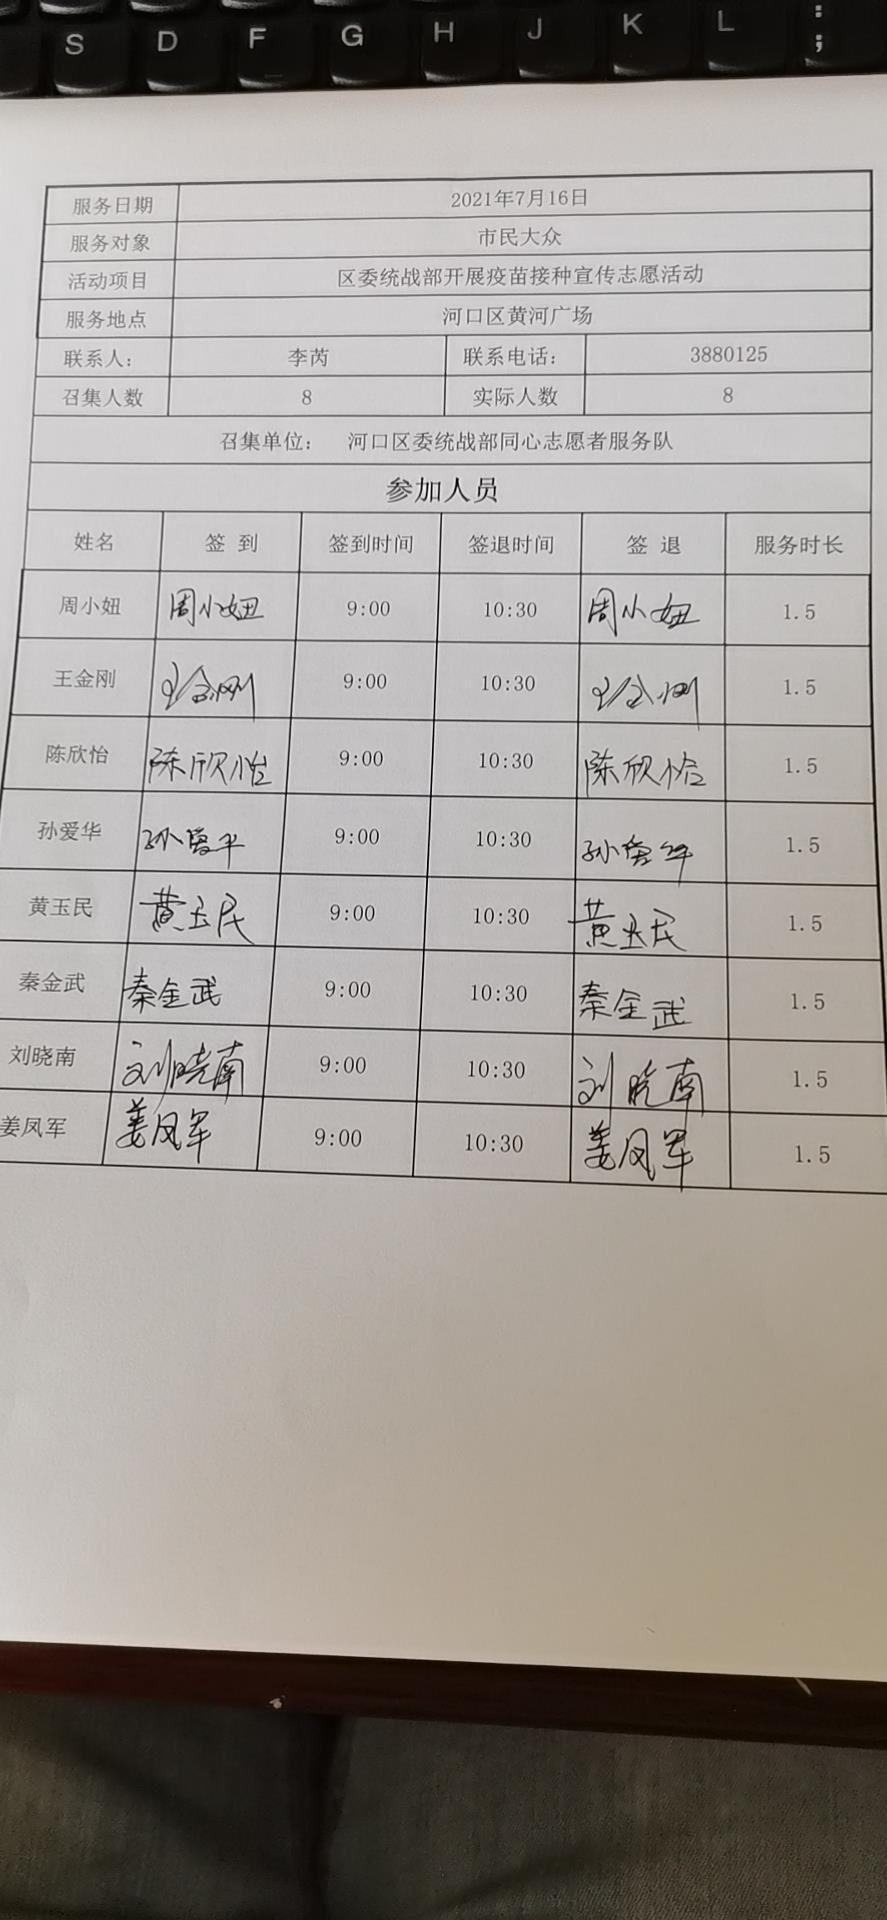 S D F G H J K L : ;
服务日期 2021年7月16日
服务对象 市民大众
活动项目 区委统战部开展疫苗接种宣传志愿活动
服务地点 河口区黄河广场
联系人： 李芮 联系电话： 3880125
召集人数 8 实际人数 8
召集单位： 河口区委统战部同心志愿者服务队
参加人员
姓名 签 到 签到时间 签退时间 签 退 服务时长
周小妞 周小妞 9:00 10:30 周小妞 1.5
王金刚 王金刚 9:00 10:30 王金刚 1.5
陈欣怡 陈欣怡 9:00 10:30 陈欣怡 1.5
孙爱华 孙爱华 9:00 10:30 孙爱华 1.5
黄玉民 黄玉民 9:00 10:30 黄玉民 1.5
秦金武 秦金武 9:00 10:30 秦金武 1.5
刘晓南 刘晓南 9:00 10:30 刘晓南 1.5
姜凤军 姜凤军 9:00 10:30 姜凤军 1.5